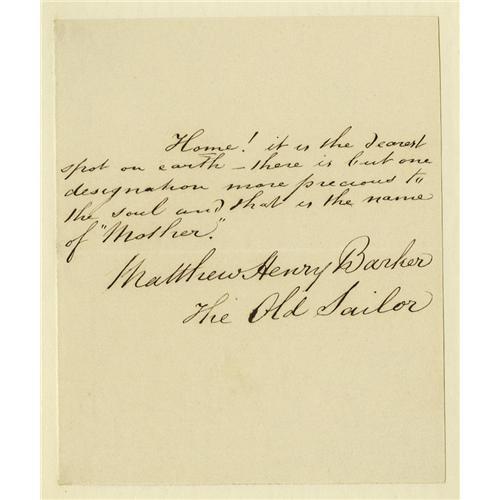 Home! it is the dearest
spot on earth – there is but one
designation more precious to
the soul and that is the name
of "Mother."
Matthew Henry Barker
The Old Sailor